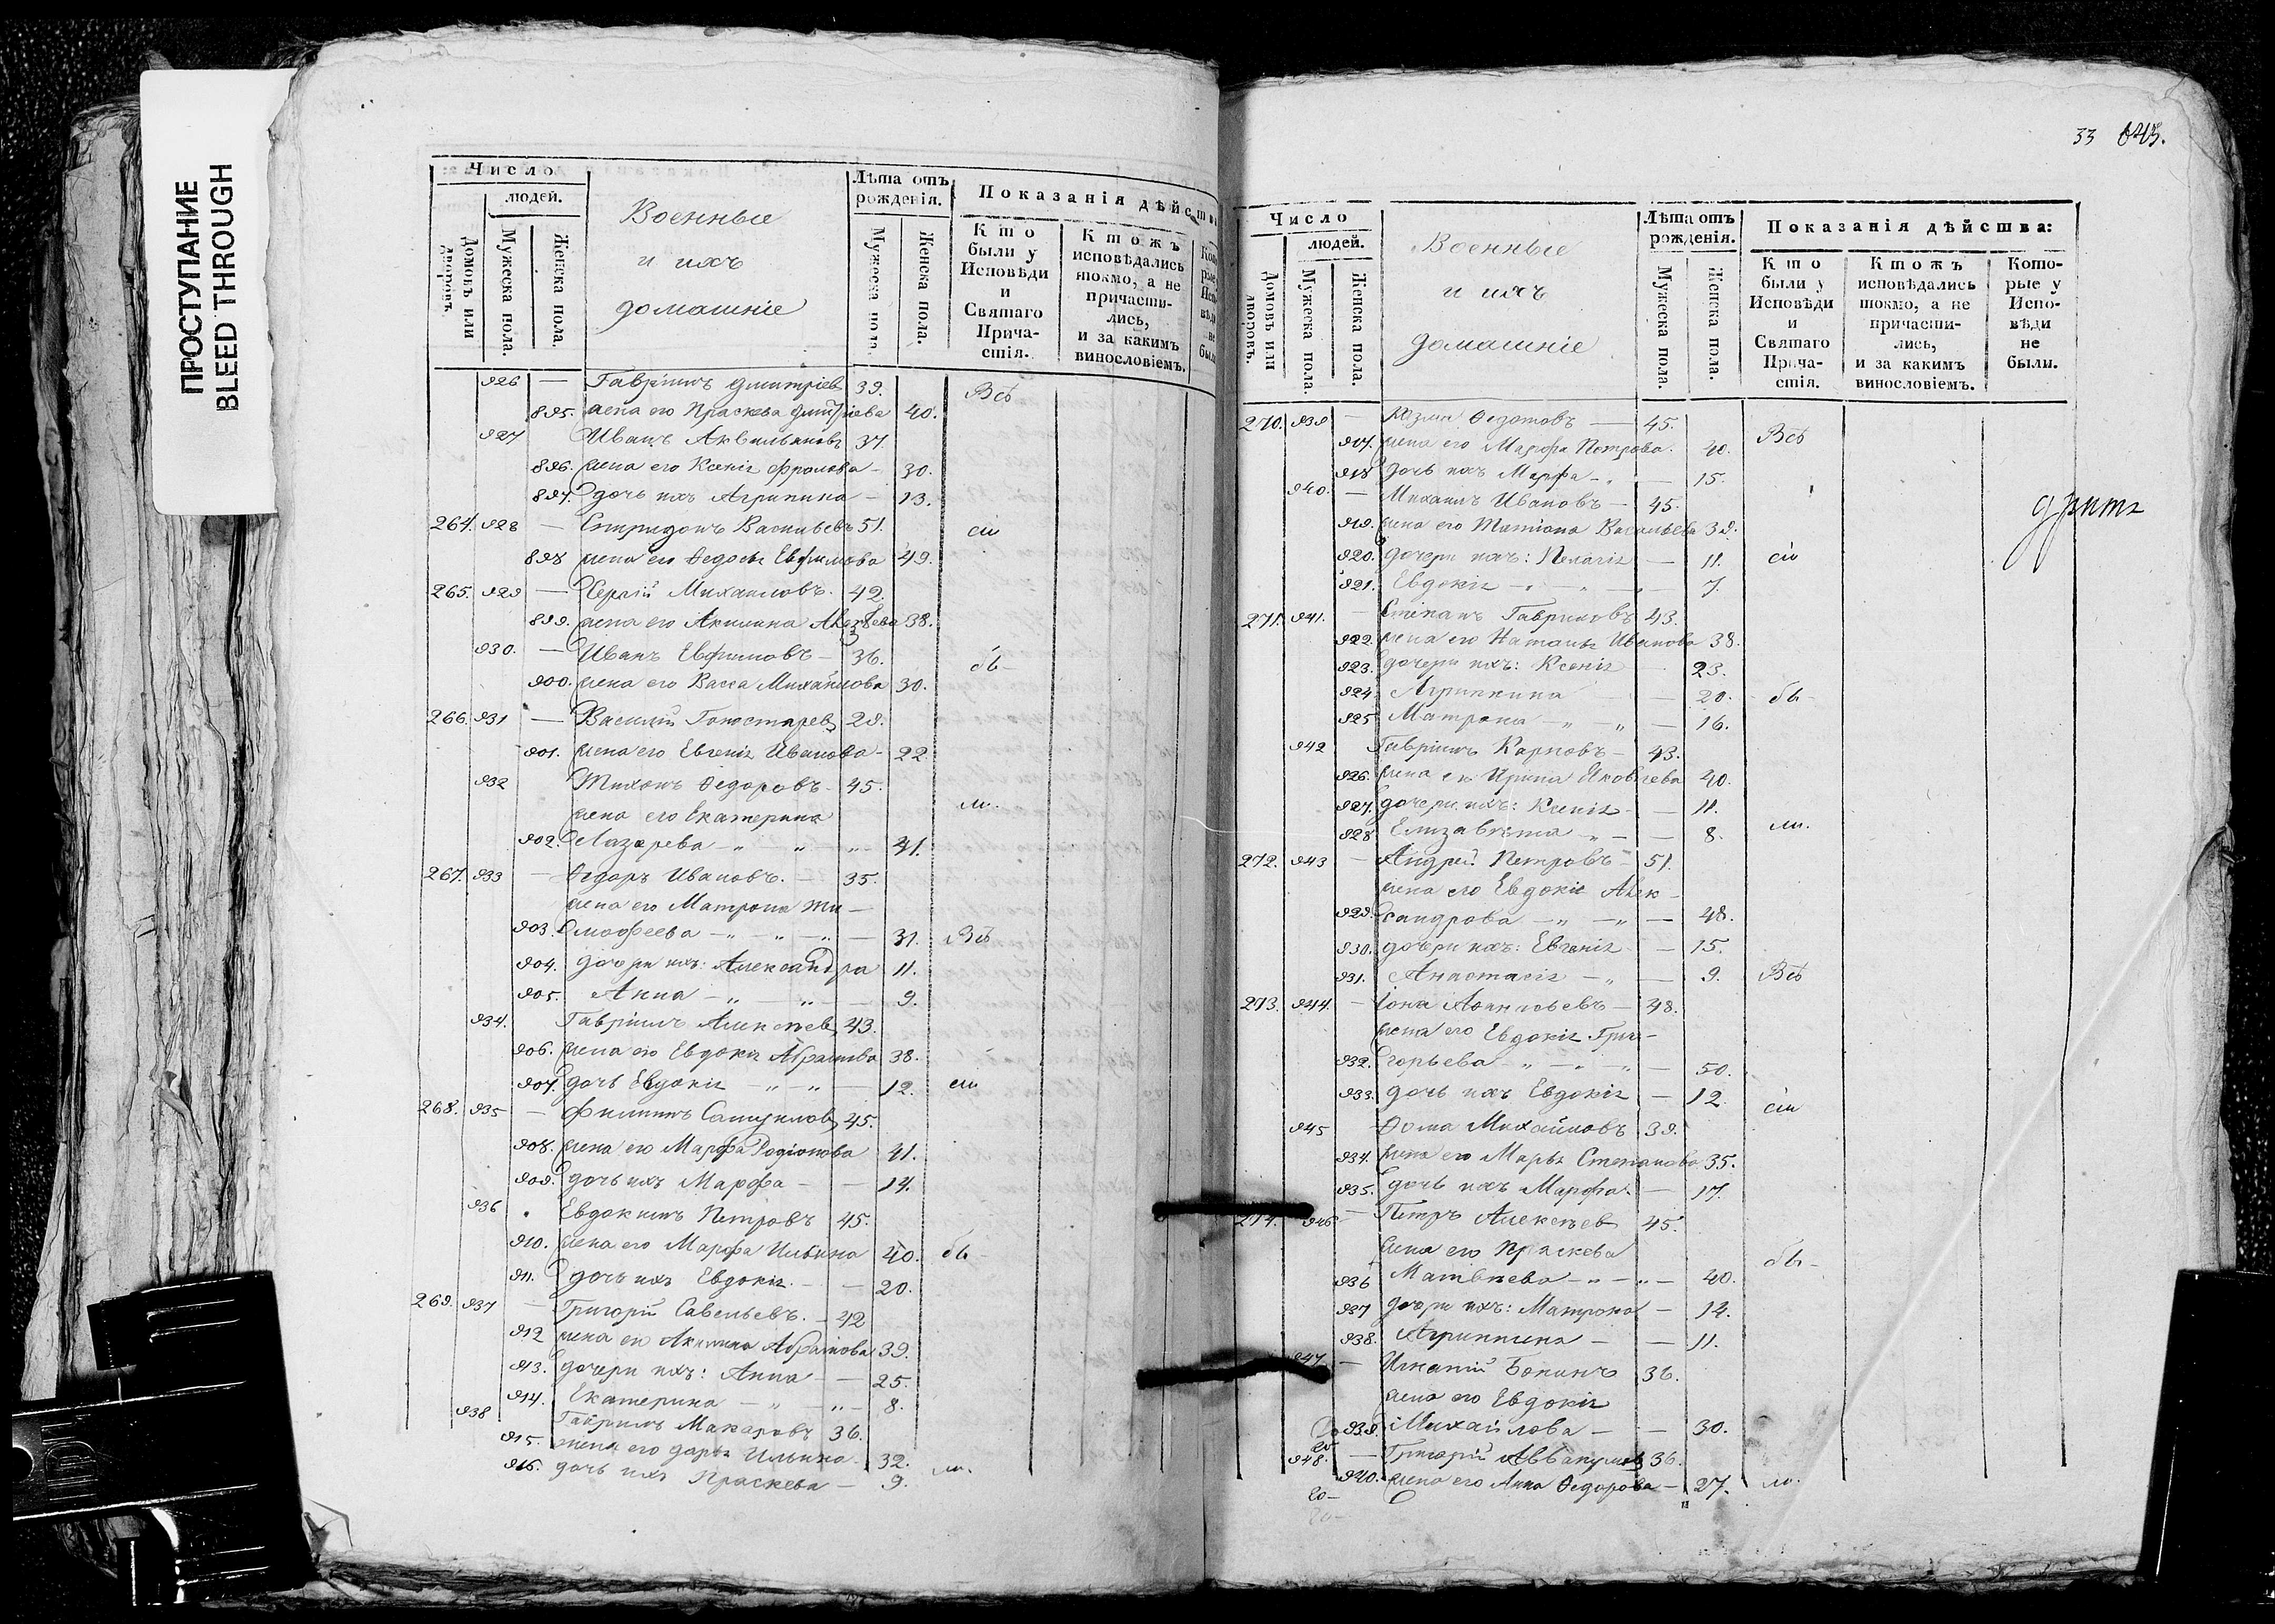 ПРОСТУПАНИЕ
BLEED THROUGH
Число
людей.
Домовъ или дворовъ.
Мужеска пола.
Женска пола.
Военные
и ихъ
домашніе
Лѣта отъ рожденія.
Мужеска пола.
Женска пола.
Показанія дѣйств
Кто были у Исповѣди и Святаго Прича-стія.
Ктожъ исповѣдались токмо, а не причасти-лись, и за какимъ винословіемъ.
926 — Гавріилъ Дмитріев 39. Всѣ
895. жена его Праскева Дмитріева 40.
927 Иванъ 37.
896. жена его Ксенія Фролова — 30.
897. дочь ихъ Агрипина — 13.
264. 928 — Спиридонъ Васильевъ 51. сіи
898 жена его Ѳедосья Евфимова 49.
265. 929 — Сергій Михаиловъ. 42.
899. жена его Акилина 38.
930. — Иванъ Евфимовъ — 36. бы-
900. жена его Васса Михайлова 30.
266. 931 — Василій 29.
901. жена его Евгенія Иванова — 22.
932 Тихонъ Ѳедоровъ 45.
жена его Екатерина ли.
902. Лазарева — „ — „ — 41.
267. 933 — Ѳедоръ Ивановъ. — 35.
жена его Матрона Ти —
903. моѳеева — „ — „ — 31. Всѣ
904. дочери ихъ: Александра 11.
905. Анна — „ — „ — 9.
934. Гавріилъ Алексѣев 43.
906. жена его Евдокія Абрамова 38.
907. дочь Евдокія — „ — „ — 12. сіи
268. 935 — Филиппъ Самуилов 45.
908. жена его Марфа Родіонова 41.
909. дочь ихъ Марфа — — 14.
936 Евдокимъ Петровъ 45.
910. жена его Марфа Ильина 40. бы-
911. дочь ихъ Евдокія — — 20.
269. 937 — Григорій Савельевъ. — 42
912 жена его Акилина Абрамова 39.
913. дочери ихъ: Анна — — 25.
914. Екатерина — „ — „ — 8.
938 Гавріилъ Макаровъ 36.
915. жена его Дарья Ильина 32.
916. дочь ихъ Праскева — 9. ли.
33 643.
Число
людей.
Домовъ или дворовъ.
Мужеска пола.
Женска пола.
Военные
и ихъ
домашніе
Лѣта отъ рожденія.
Мужеска пола.
Женска пола.
Показанія дѣйства:
Кто были у Исповѣди и Святаго Прича-стія.
Ктожъ исповѣдались токмо, а не причасти-лись, и за какимъ винословіемъ.
Кото-рые у Испо-вѣди не были.
270. 939 — Козма Ѳедотовъ — 45.
917. жена его Марфа Петрова. 40. Всѣ
918 дочь ихъ Марфа — 15.
940. — Михаилъ Ивановъ — 45.
919. жена его Татіана Васильева 39.
920. дочери ихъ: Пелагія — 11. сіи
921. Евдокія — „ — 7.
271. 941. — Степанъ Гавриловъ 43.
922. жена его Наталья Иванова 38.
923. дочери ихъ: Ксенія 23.
924. Агрипина — 20. бы-
925 Матрона — „ — „ — 16.
942 Гавріилъ Карповъ — 43.
926. жена его Ирина Яковлева 40.
927. дочери ихъ: Ксенія — — 11.
928 Елизавета — „ — 8. ли.
272. 943 — Андрей Петровъ — 51.
жена его Евдокія Алек —
929. сандрова — „ — „ — 48.
930. дочери ихъ: Евгенія — 15.
931. Анастасія — „ — 9. Всѣ
273. 944. — Іона — 48.
жена его Евдокія Григ —
932. горьева — „ — „ — 50.
933 дочь ихъ Евдокія — 12. сіи
945 Ѳома Михайловъ 39.
934. жена его Марья Степанова 35.
935. дочь ихъ Марфа. — 17.
274. 946 — Петръ Алексѣев 45.
жена его Праскева бы-
936 Матвѣева — „ — „ — 40.
937 дочери ихъ: Матрона — 14.
938. Агриппина — — 11.
947 — Игнатій 36.
жена его Евдокія
939. Михайлова — — 30.
948. — Григорій Аввакумов 36.
940. жена его Анна Ѳедорова — 27. ли.